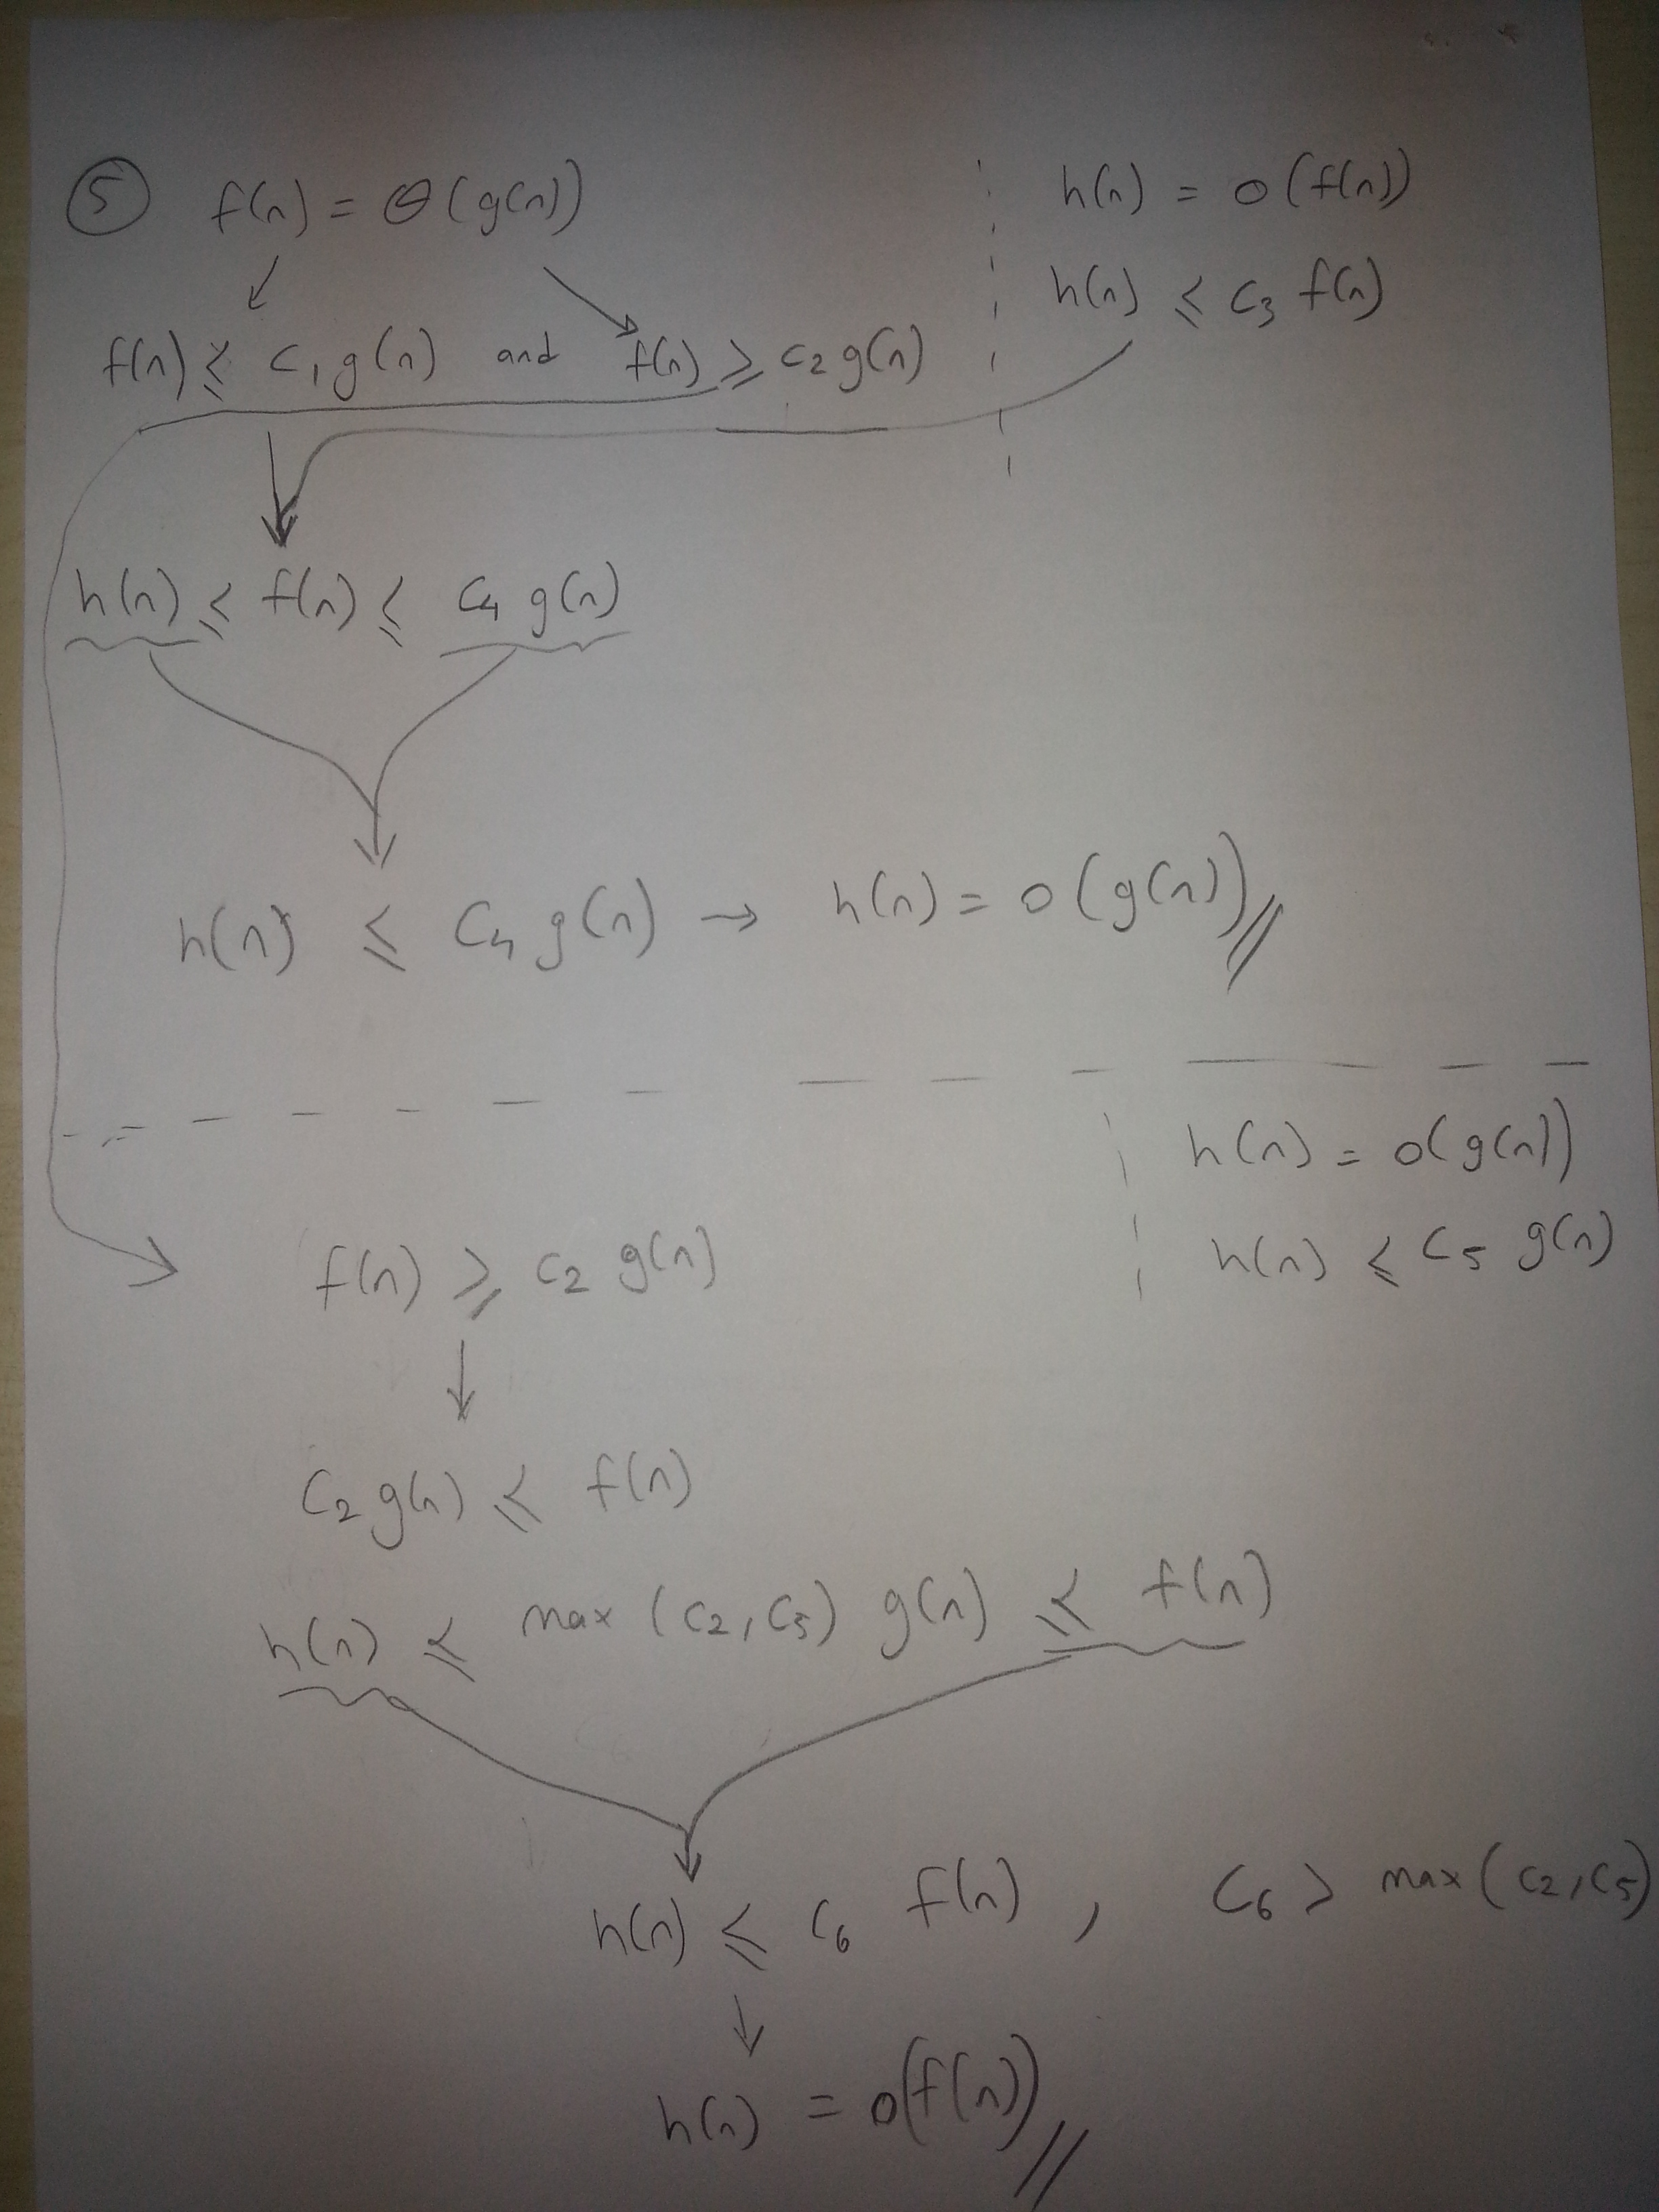 5 f(n) = Θ(g(n))
h(n) = O(f(n))
h(n) ≤ c₃ f(n)
f(n) ≤ c₁g(n) and f(n) ≥ c₂g(n)
h(n) ≤ f(n) ≤ c₄ g(n)
h(n) ≤ c₄ g(n) → h(n) = O(g(n))//
h(n) = O(g(n))
h(n) ≤ c₅ g(n)
f(n) ≥ c₂ g(n)
↓
c₂g(n) ≤ f(n)
h(n) ≤ max(c₂,c₅) g(n) ≤ f(n)
h(n) ≤ c₆ f(n), c₆ > max(c₂,c₅)
↓
h(n) = O(f(n))//